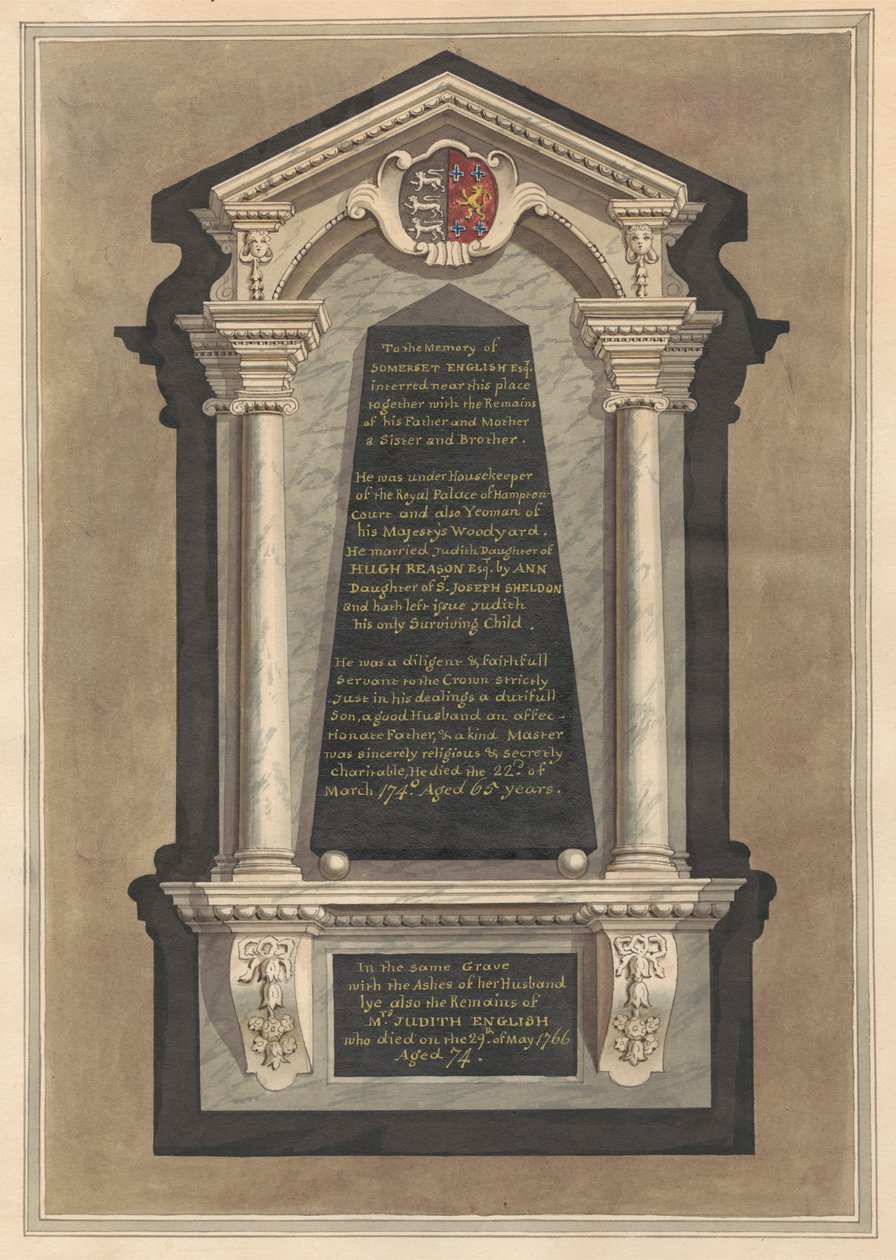 To the Memory of
SOMERSET ENGLISH Esqr.
interred near this place
together with the Remains
of his Father and Mother
a Sister and Brother.
He was under Housekeeper
of the Royal Palace of Hampton-
Court and also Yeoman of
his Majesty's Woodyard.
He married Judith Daughter of
HUGH REASON Esqr. by ANN
Daughter of Sr. JOSEPH SHELDON
and hath left issue Judith
his only Surviving Child.
He was a diligent & faithfull
Servant to the Crown strictly
Just in his dealings a dutifull
Son, a good Husband an affec-
tionate Father, & a kind Master
was sincerely religious & secretly
charitable, He died the 22d. of
March 1740 Aged 65 years.
In the same Grave
with the Ashes of her Husband
lye also the Remains of
Mrs. JUDITH ENGLISH
who died on the 29th. of May 1766
Aged 74.